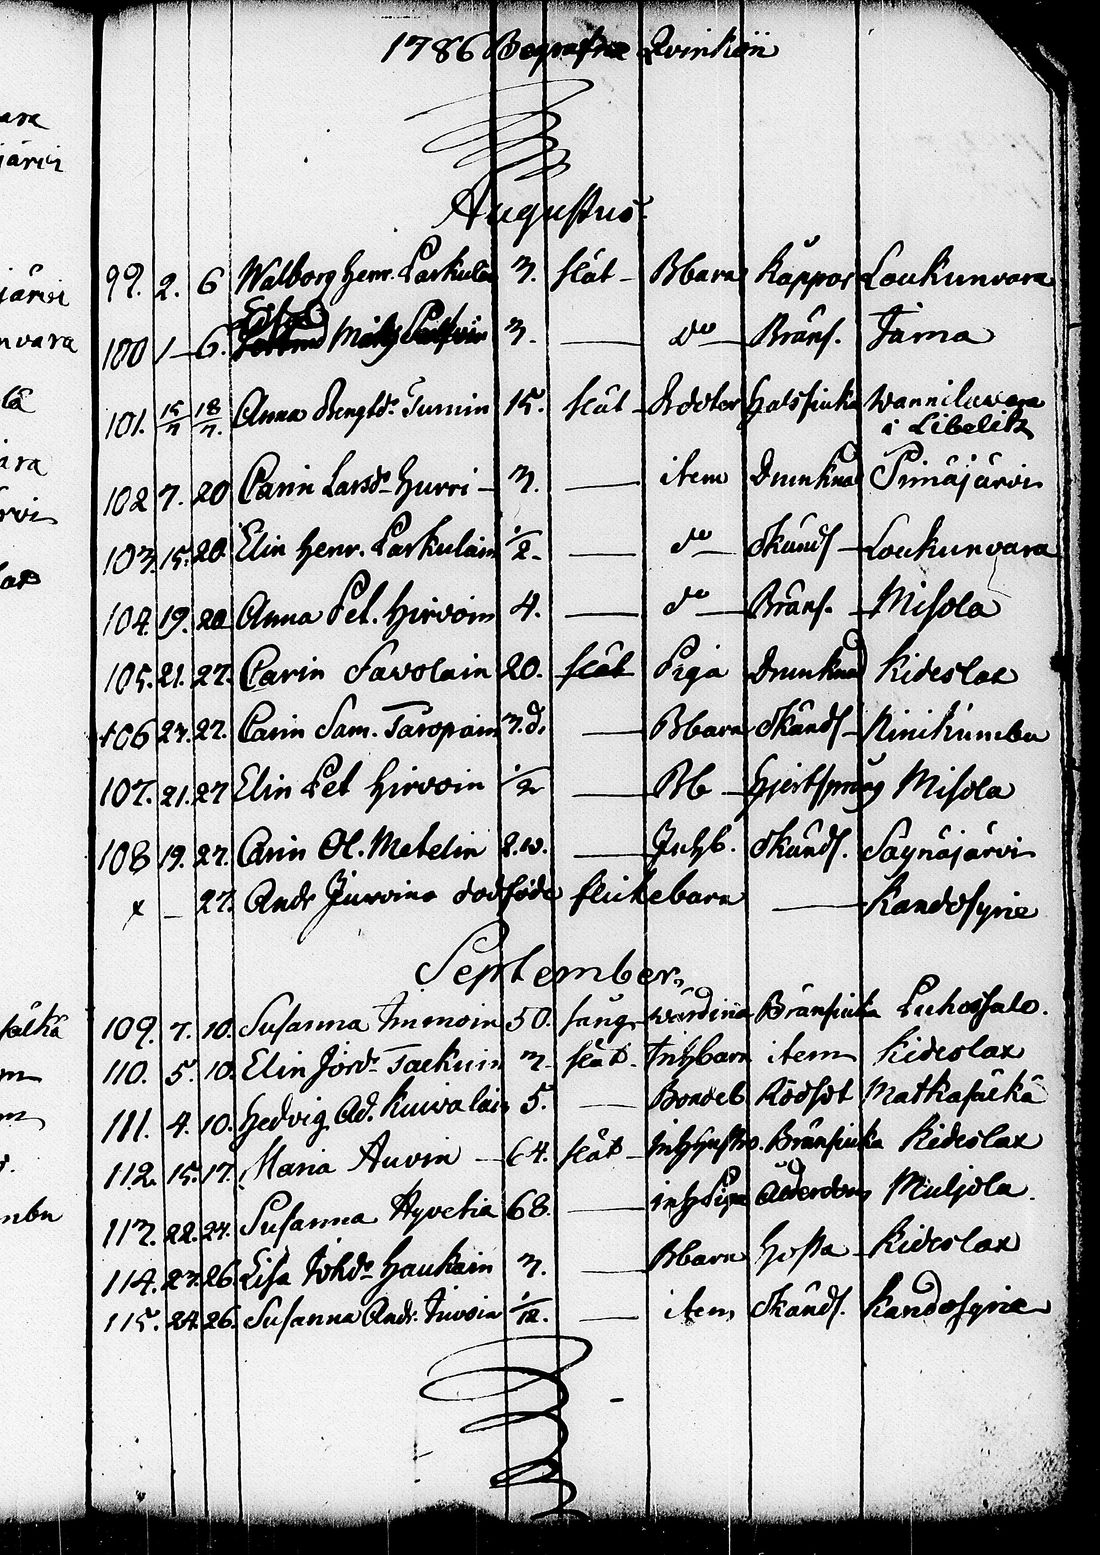 ara
järvi
1786 Begrafne Qvinkön
Augustus
järvi
99. 2. 6 Walborg Henr. Parkulain 3. slät - Bbarn Koppor Loukunvara
nvara
Elsa
100 1 - 6. Mats 3. — do Bränf. Jama
101. 15/7 18/7. Anna Bengtdr. Turnin 15. slät - Dotter Halssiuka Wannilawara
i Libelitz
102 7. 20 Carin Larsdr Hurri - 3. — item Drunknad Piinäjärvi
103. 15. 20. Elin Henr. Parkulain 1/2. — do Okänds - Loukunvara
104. 19. 20 Anna Pet. Hirvoin 4. — do Bränf. - Misola
105. 21. 27. Carin Savolain 20. slät Piga Drunknad Kideslax
106 23. 27. Carin Sam. Taropain 3.d. — Bbarn Okänds - Kinikumbu
107. 21. 27 Elin Pet Hirvoin 1/2 — Bb - Hjertsprång Misola
108 19. 27. Carin Ol. Metelin 2.w. — Inhb. Okänds. Saynäjärvi
x - 27. Andr Jurvins dödföde flickebarn — Kandosyrie
September,
109. 7. 10. Susanna Immoin 50. säng- wärdinna Bränsiuka Puhossalo.
110. 5. 10. Elin Jördr Taekuin 3. slät. Inhbarn item Kideslax
111. 4. 10. Hedvig Ad. Kuivalain 5. — Bondeb Rödsot Matkasälkä
112. 15. 17. Maria Auvin - 64. slät - Inhhustro. Bränsiuka Kideslax
113. 22. 24. Susanna Hyvetia 68. — Ålderdom Muljola.
114. 23. 26. Lisa Johdr Haukain 3. — Bbarn Hosta - Kideslax
115. 24. 26. Susanna Andr. Invoin 1/12. — item Okänds. Kandosyrie